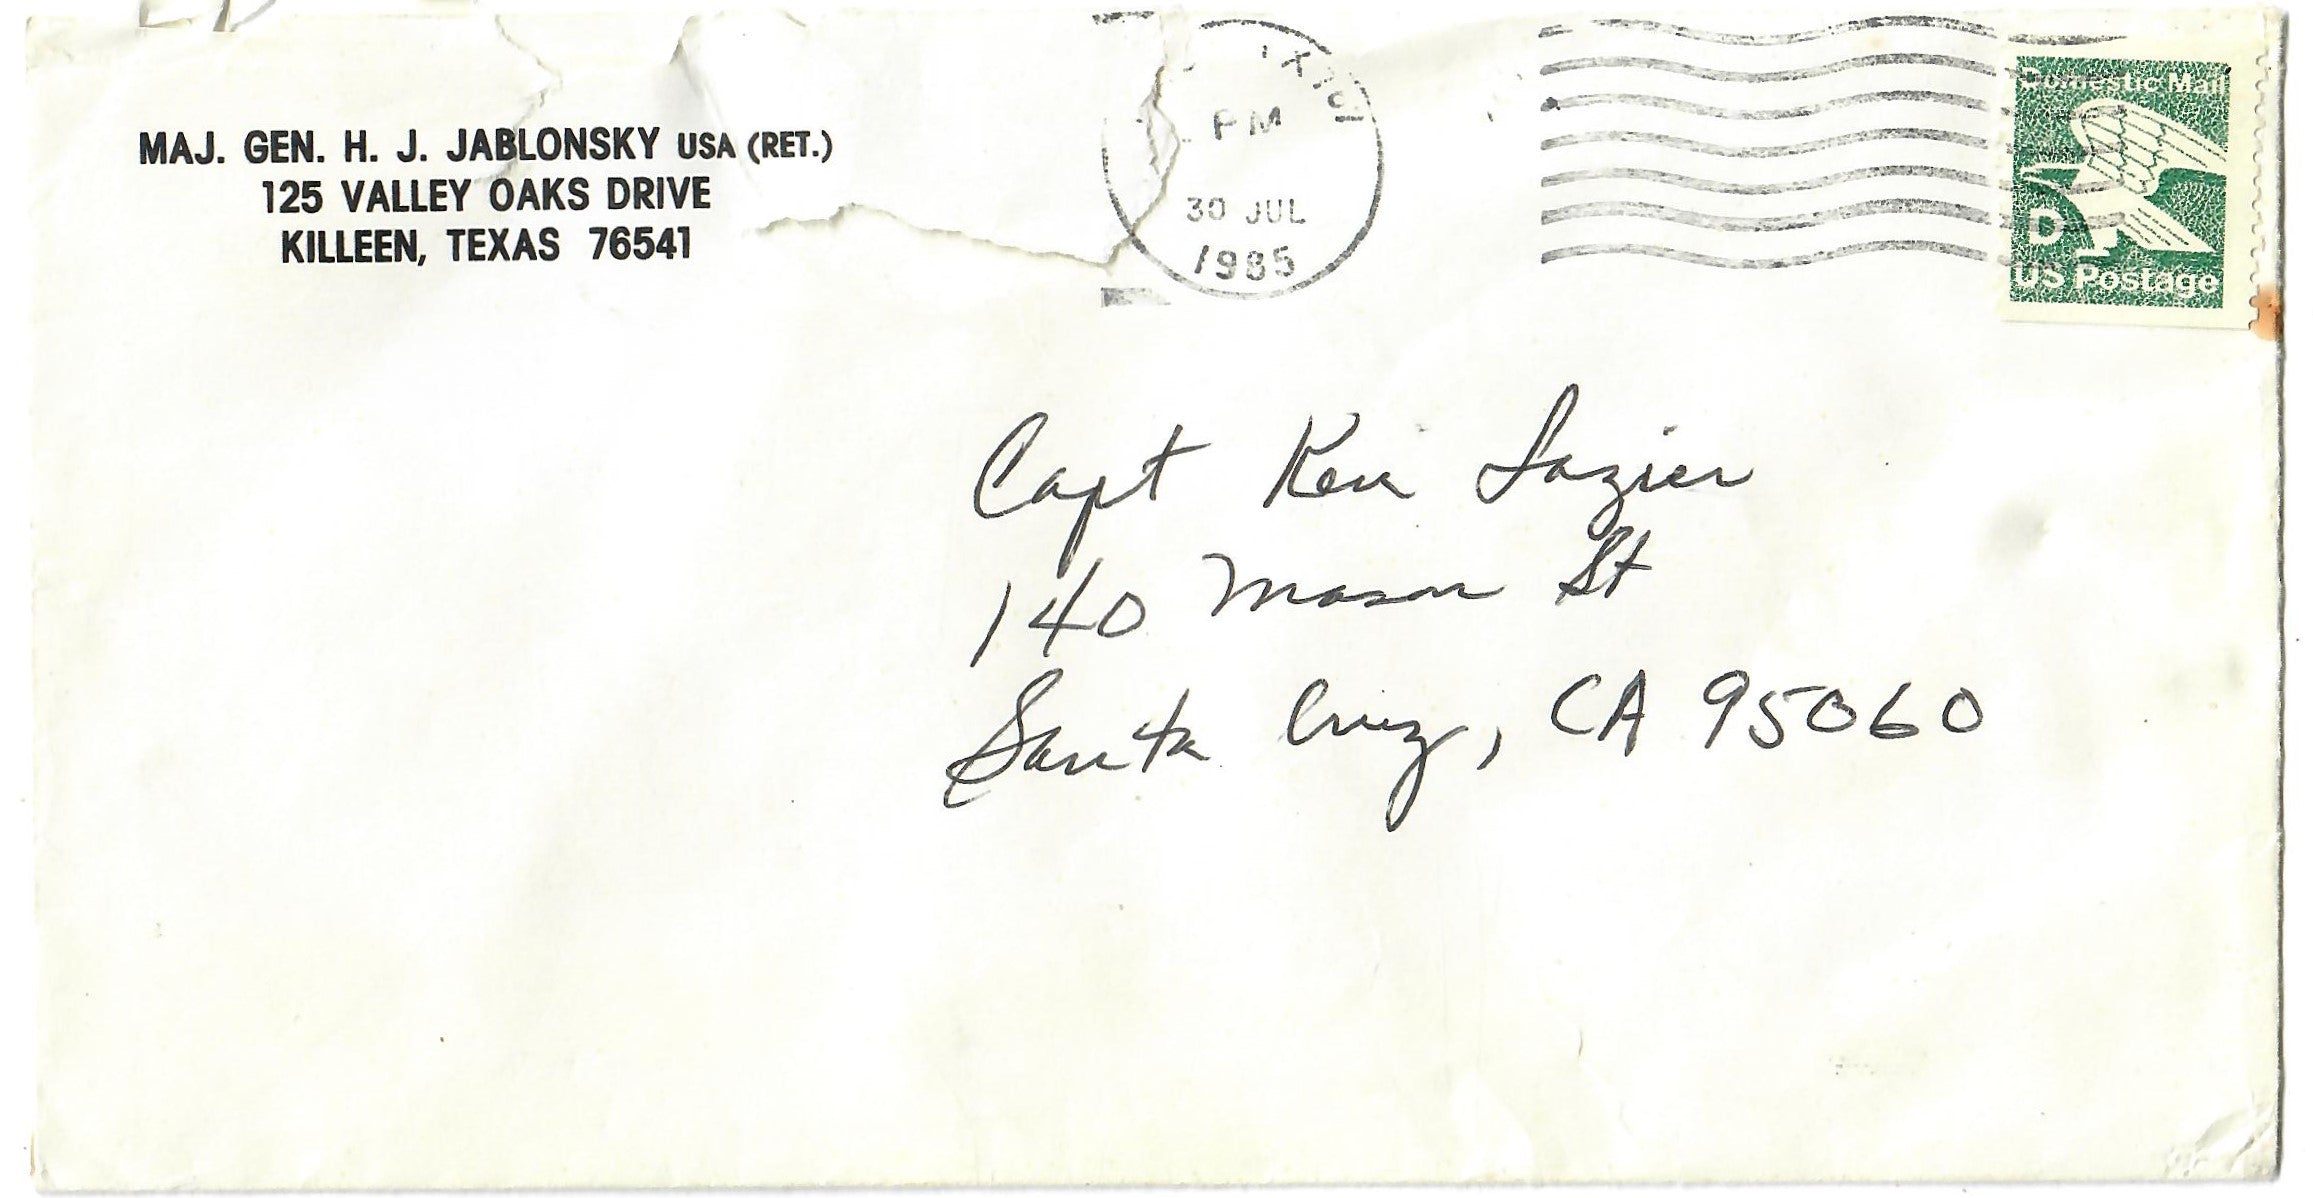 MAJ. GEN. H. J. JABLONSKY USA (RET.)
125 VALLEY OAKS DRIVE
KILLEEN, TEXAS 76541
PM
30 JUL
1985
Domestic Mail
D
US Postage
Capt Ken Lazier
140 Mason St
Santa Cruz, CA 95060